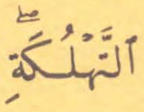 ٱلتَّهْلُكَةِ ۖ